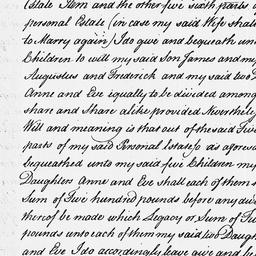 Estate Item and the other five sixth parts
personal Estate (in case my said Wife shall
to Marry again) I do give and bequeath un
Children to will my said Son James and my
Augustus and Frederick and my said two
Anne and Eve equally to be divided among
share and Share alike provided Neverthele
Will and meaning is that out of the said Five
parts of my said Personal Estate so as aforesa
bequeathed unto my said five Children my
Daughters Anne and Eve shall each of them
Sum of Five hundred pounds before any divi
thereof be made which Legacy or Sum of Fiv
pounds unto each of them my said two Daugh
and Eve I do accordingly leave give and be